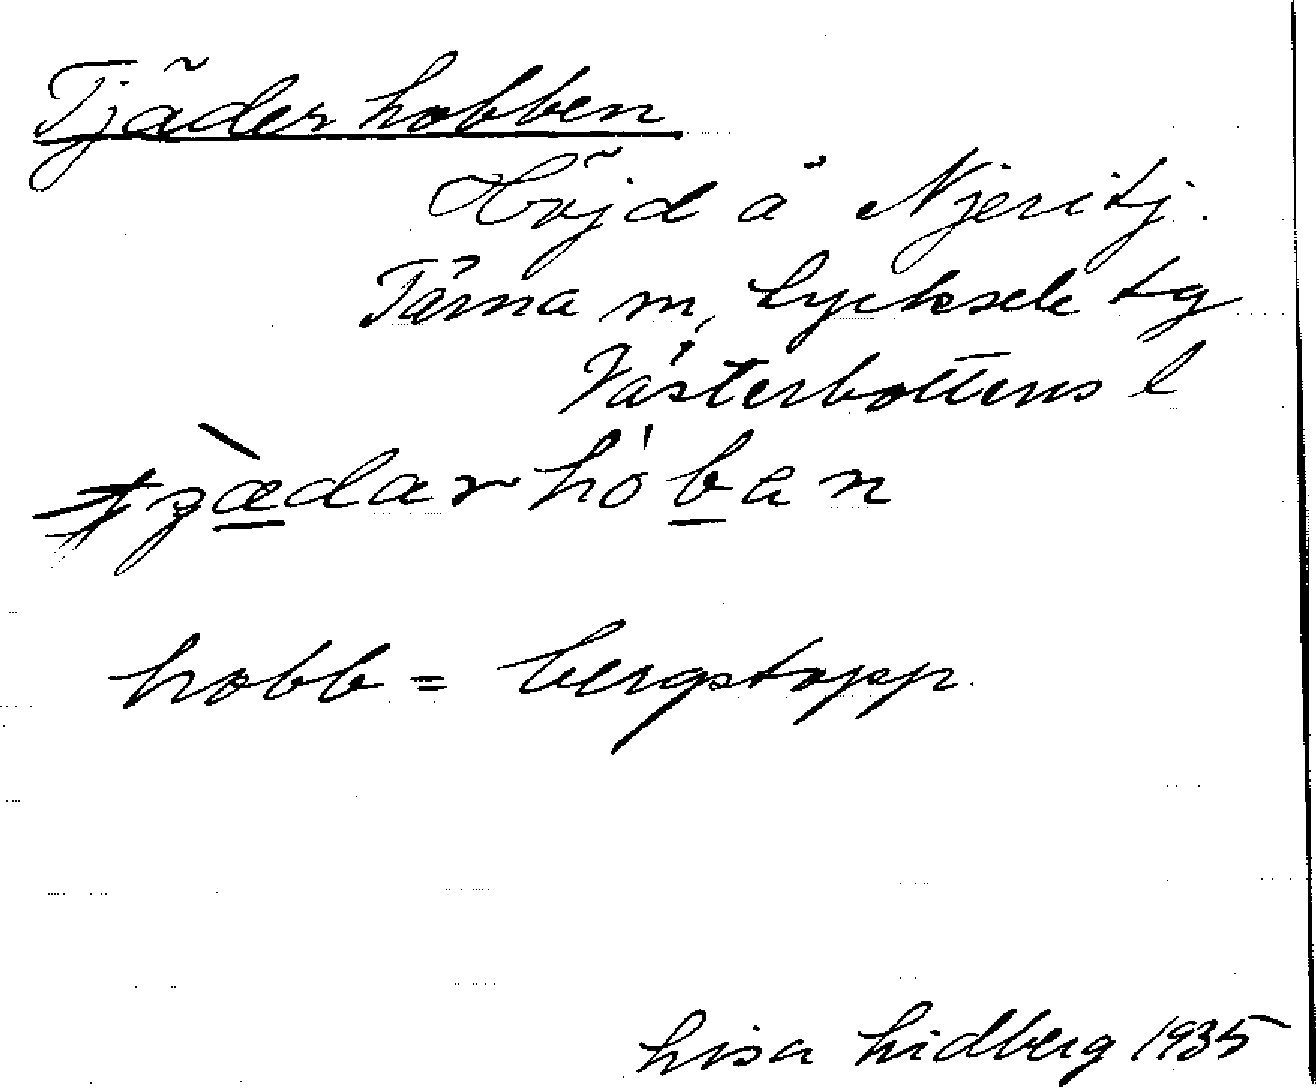 Tjäderhobben
Höjd å Njeritj.
Tärna m, Lycksele tg
Västerbottens l
hobb = bergstopp.
Lisa Lidberg 1935